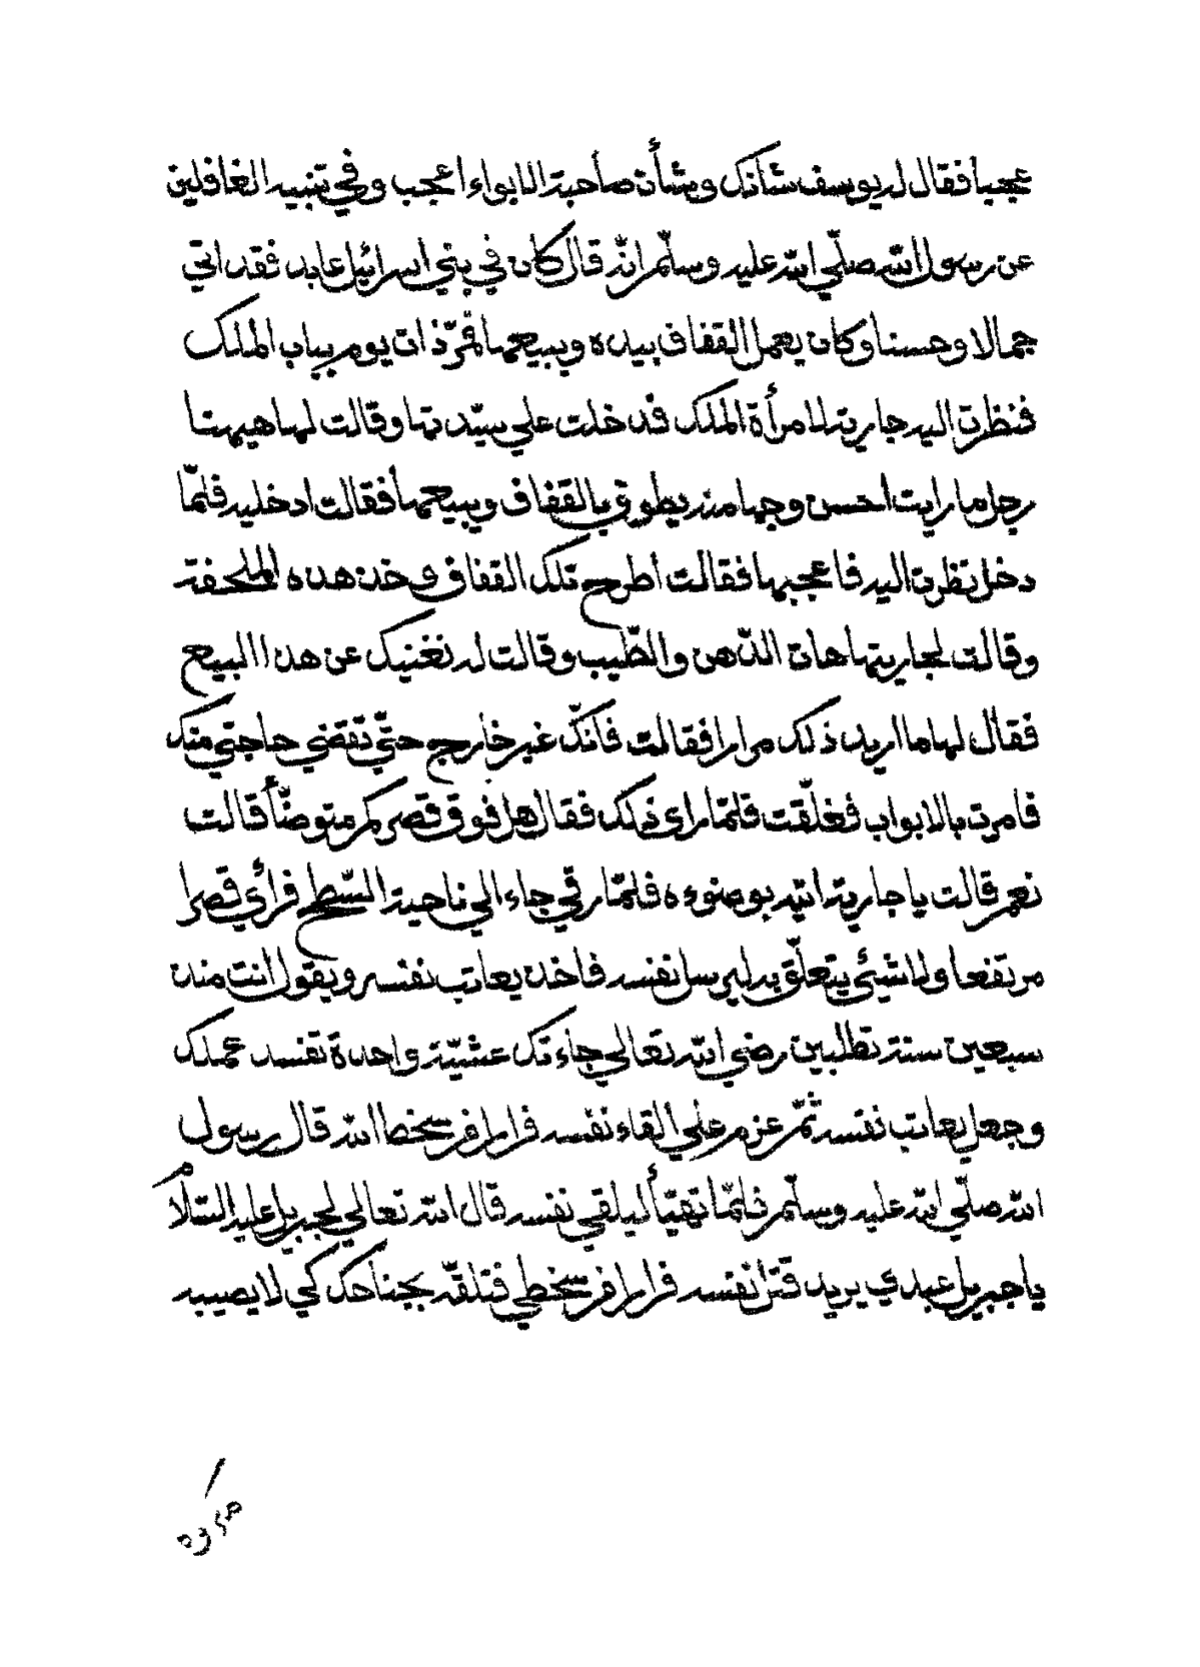 عجبا فقال له يوسف شأنك وشأن صاحبة الابواء اعجب وفي تنبيه الغافلين
عن رسول الله صلّي الله عليه وسلّم انّه قال كان في بني اسرائيل عابد فقد اتي
جمالا وحسنا وكان يعمل القفاف بيده ويبيعها فمرّ ذات يوم بباب الملك
فنظرت اليه جارية لامرأة الملك فدخلت علي سيّدتها وقالت لها هيهنا
رجل ما رايت احسن وجها منه يطوف بالقفاف ويبيعها فقالت ادخليه فلمّا
دخل نظرت اليه فاعجبها فقالت اطرح تلك القفاف وخذ هذه الملحفة
وقالت لجاريتها هات الدّهن والطّيب وقالت له نغنيك عن هذا البيع
فقال لها ما اريد ذلك مرارا فقالت فانّك غير خارج حتّي تقضي حاجتي منك
فامرت بالابواب فغلّقت فلمّا راي ذلك فقال هل فوق قصركم متوضّأ قالت
نعم قالت يا جارية اتيه بوضوءه فلمّا رقي جاء الي ناحية السّطح فرأي قصرا
مرتفعا ولا شيئ يتعلّق به ليرسل نفسه فاخذ يعاتب نفسه ويقول انت منذ
سبعين سنة تطلبين رضي الله تعالي جاءتك عشيّة واحدة تفسد عملك
وجعل يعاتب نفسه ثمّ عزم علي القاء نفسه فرارا من سخط الله قال رسول
الله صلّي الله عليه وسلّم فلمّا تهيّأ ليلقي نفسه قال الله تعالي لجبريل عليه السّلام
يا جبريل عبدي يريد قتل نفسه فرارا من سخطي فتلقّه بجناحك كي لا يصيبه